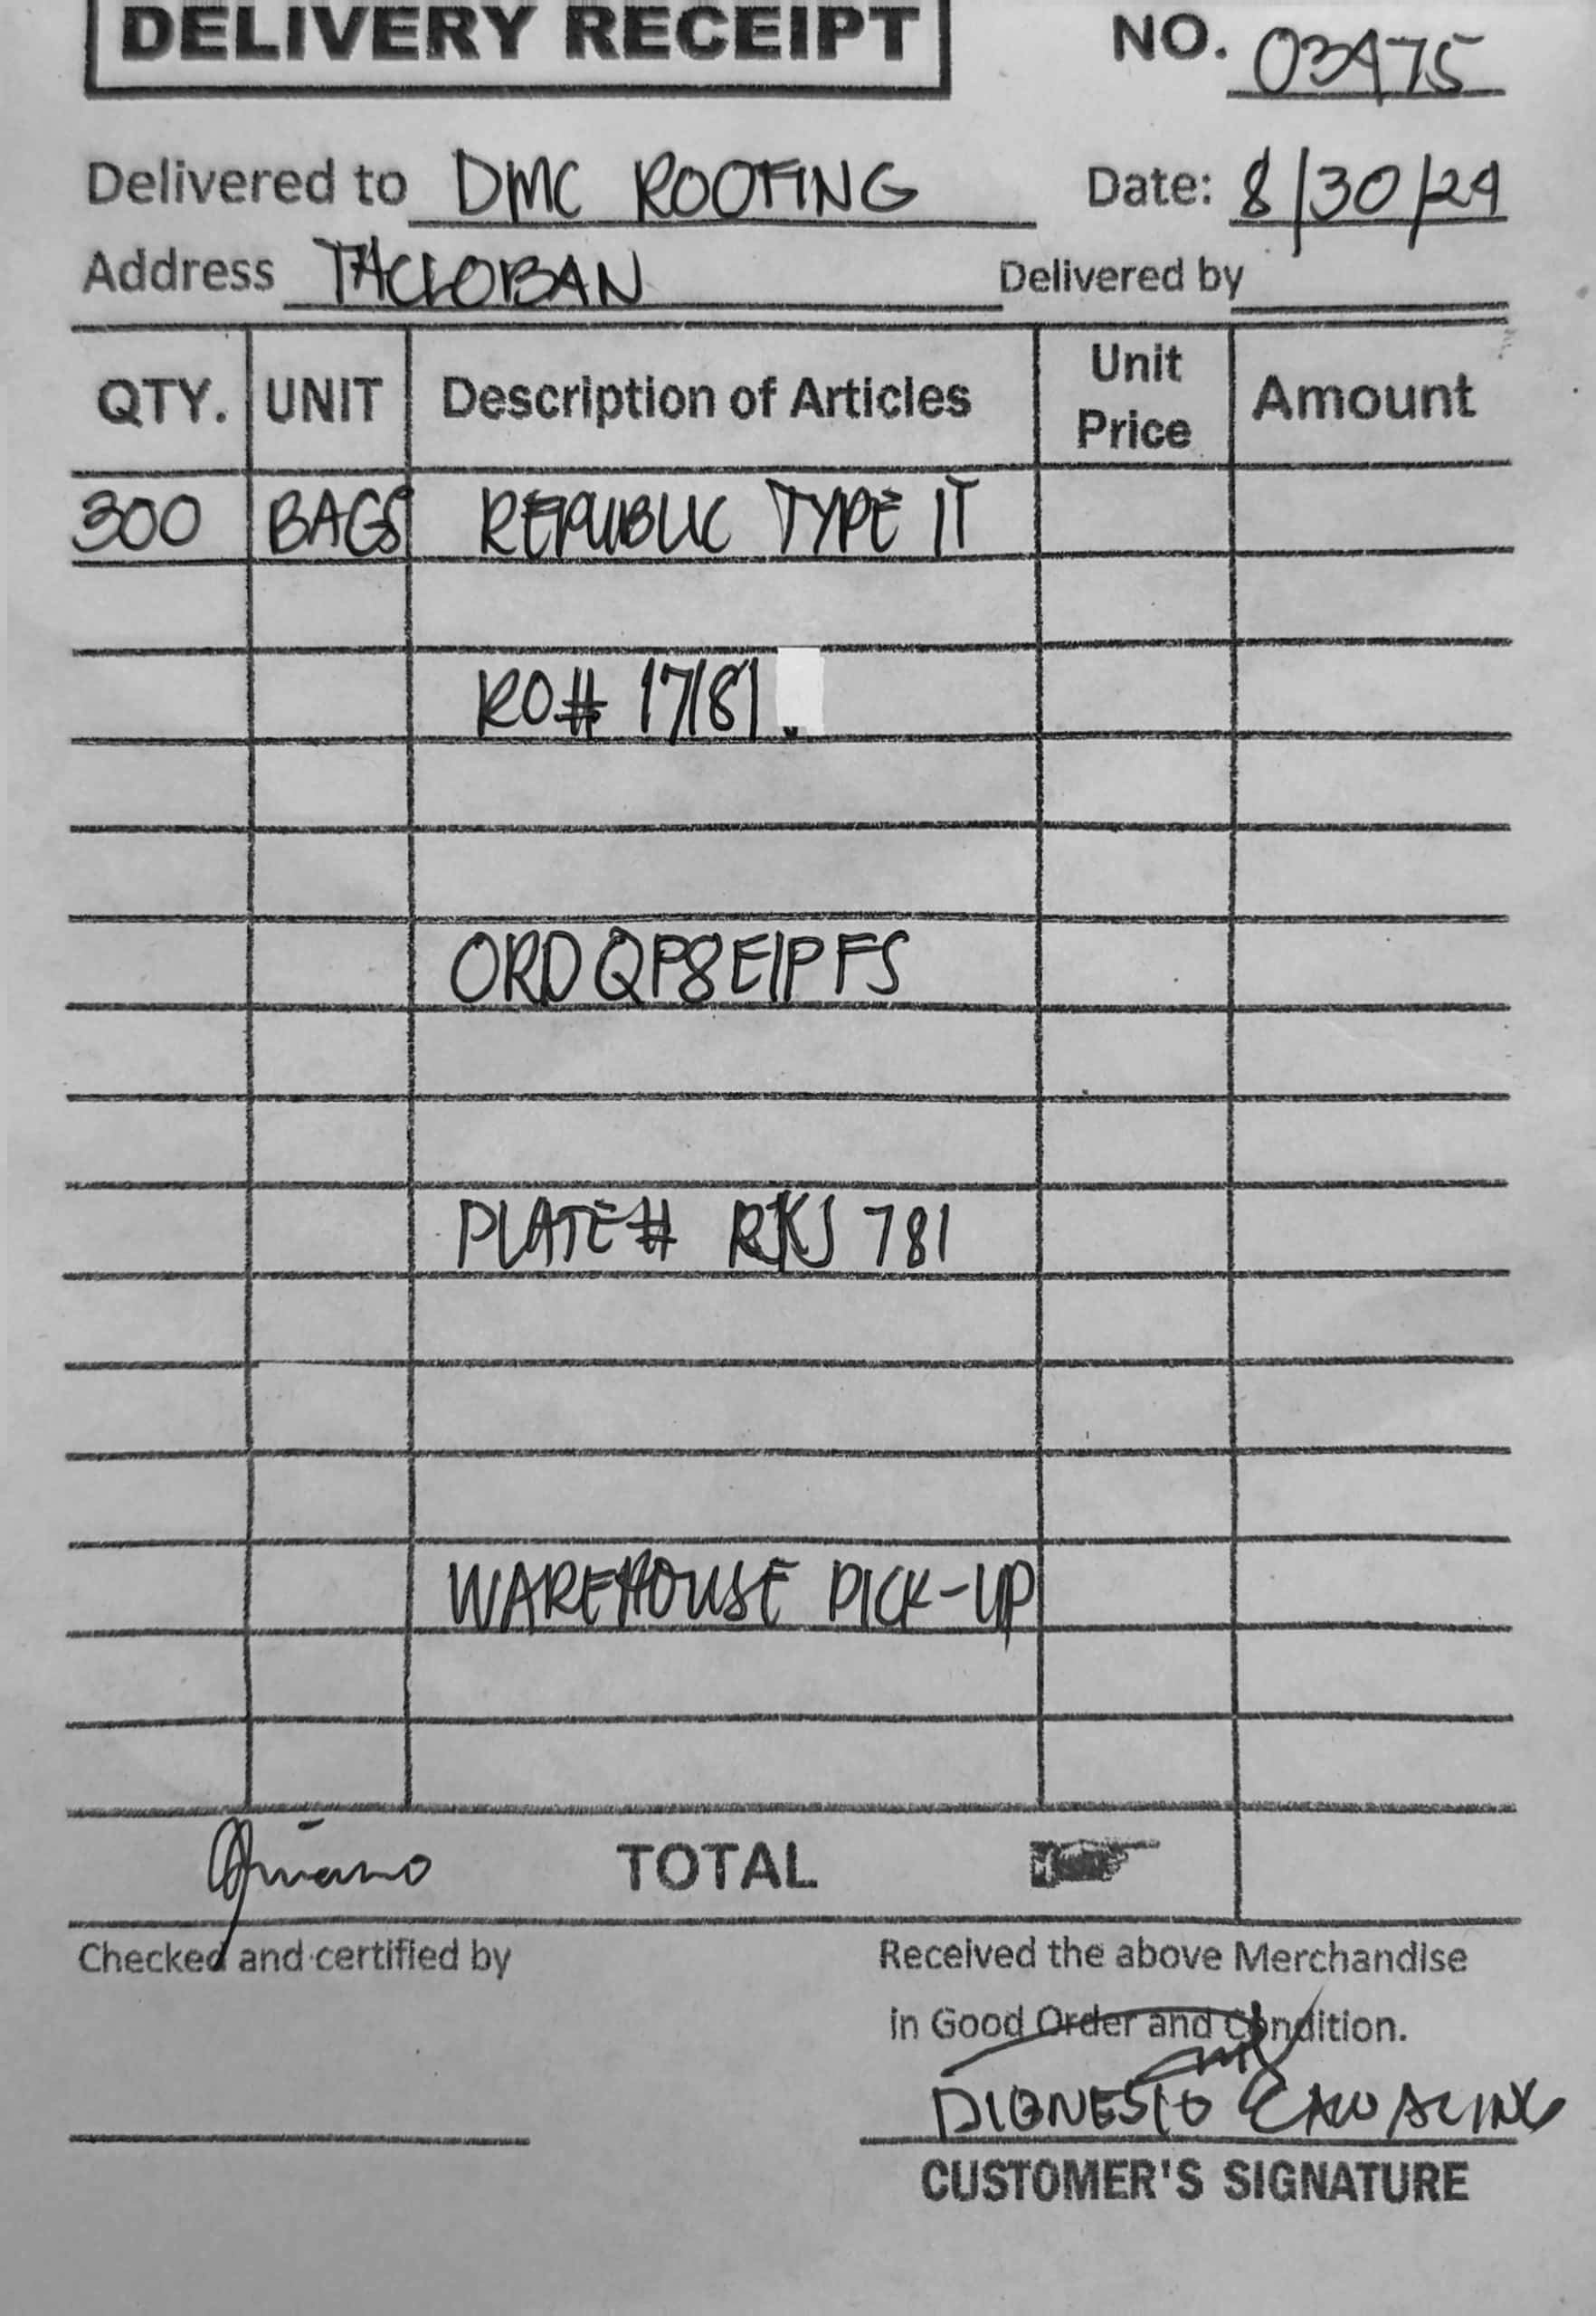 DELIVERY RECEIPT
NO. 03475
Delivered to DMC ROOFING
Date: 8/30/24
Address TACLOBAN
Delivered by
QTY. UNIT Description of Articles Unit Price Amount
300 BAGS REPUBLIC TYPE 1T
RO# 17181
ORDQP8E1PFS
PLATE# RKJ 781
WAREHOUSE PICK-UP
TOTAL
Checked and certified by
Received the above Merchandise
in Good Order and Condition.
CUSTOMER'S SIGNATURE